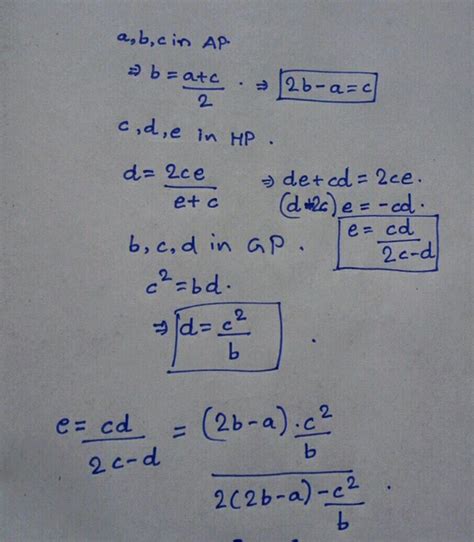 a,b,c in AP.
⇒ b = a+c/2 · ⇒ 2b-a=c
c,d,e in HP.
d = 2ce/e+c ⇒ de+cd = 2ce.
(d-2c) e = -cd.
e = cd/2c-d
b, c, d in GP.
c² = bd.
⇒ d = c²/b .
e = cd/2c-d = (2b-a) · c²/b / 2(2b-a) - c²/b .